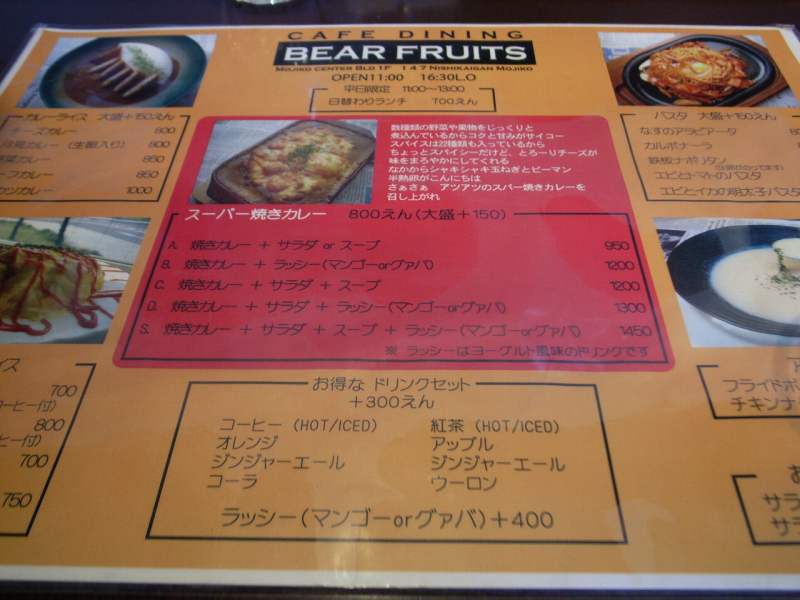 CAFE DINING
BEAR FRUITS
MOJIKO CENTER BLD 1F 1 4 7 NISHIKAIGAN MOJIKO
OPEN11:00 16:30L.O
平日限定 11:00～13:00
日替わりランチ 700えん
カレーライス 大盛+150えん
チーズカレー 800
カレー (生卵入り) 800
野菜カレー 850
ーフカレー 850
カツカレー 1000
数種類の野菜や果物をじっくりと
煮込んでいるからコクと甘みがサイコー
スパイスは22種類も入っているから
ちょっとスパイシーだけど、とろーりチーズが
味をまろやかにしてくれる
なかからシャキシャキ玉ねぎとピーマン
半熟卵がこんにちは
さぁさぁ アツアツのスパー焼きカレーを
召し上がれ
スーパー焼きカレー 800えん(大盛+150)
A. 焼きカレー + サラダ or スープ 950
B. 焼きカレー + ラッシー(マンゴーorグァバ) 1200
C. 焼きカレー + サラダ + スープ 1200
D. 焼きカレー + サラダ + ラッシー(マンゴーorグァバ) 1300
S. 焼きカレー + サラダ + スープ + ラッシー(マンゴーorグァバ) 1450
※ ラッシーはヨーグルト風味のドリンクです
パスタ 大盛+150えん
なすのアラビアータ
カルボナーラ
鉄板ナポリタン
エビとトマトのパスタ
エビとイカの明太子パスタ
イス
700
コーヒー付)
800
ヒー付)
700
750
お得な ドリンクセット
+300えん
コーヒー (HOT/ICED) 紅茶 (HOT/ICED)
オレンジ アップル
ジンジャーエール ジンジャーエール
コーラ ウーロン
ラッシー(マンゴーorグァバ)+400
フライドポ
チキンナ
お
サラ
サラ